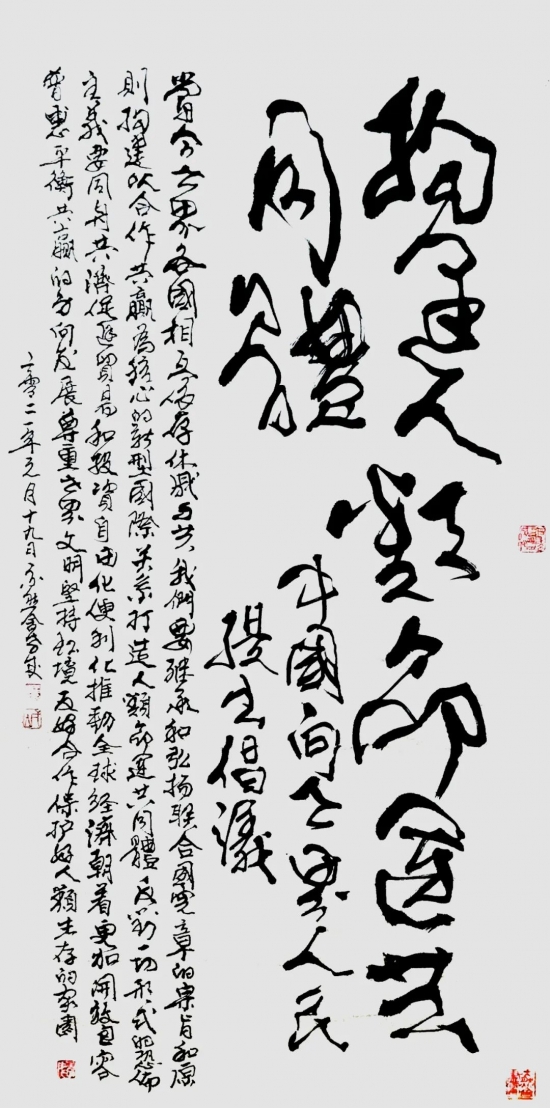 構建人類命運共
同體
中國向世界人民
提出倡議
當今世界各國相互依存休戚与共我們要继承和弘扬联合國宪章的宗旨和原
則構建以合作共赢為核心的新型國際关系打造人類命運共同體反对一切形式的恐怖
主義要同舟共濟促進貿易和投資自由化便利化推動全球經濟朝着更加開放包容
普惠平衡共赢的方向发展尊重世界文明堅持环境友好合作保护好人類生存的家園
二零二一年元月十九日